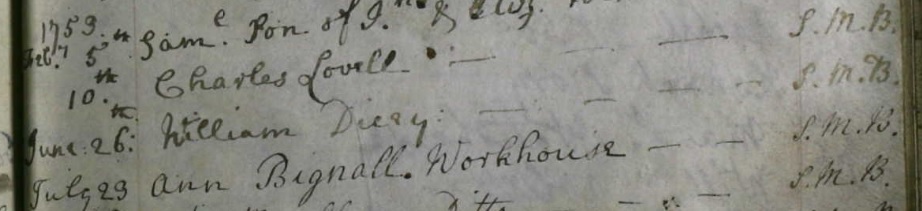 1753.
Feb.ry 5th Sam.e Son of J.n & Eliz. S.M.B.
10.th Charles Lovell S.M.B.
June 26th: William Diczy: S.M.B.
July 23 Ann Bignall. Workhouse S.M.B.
Ditto